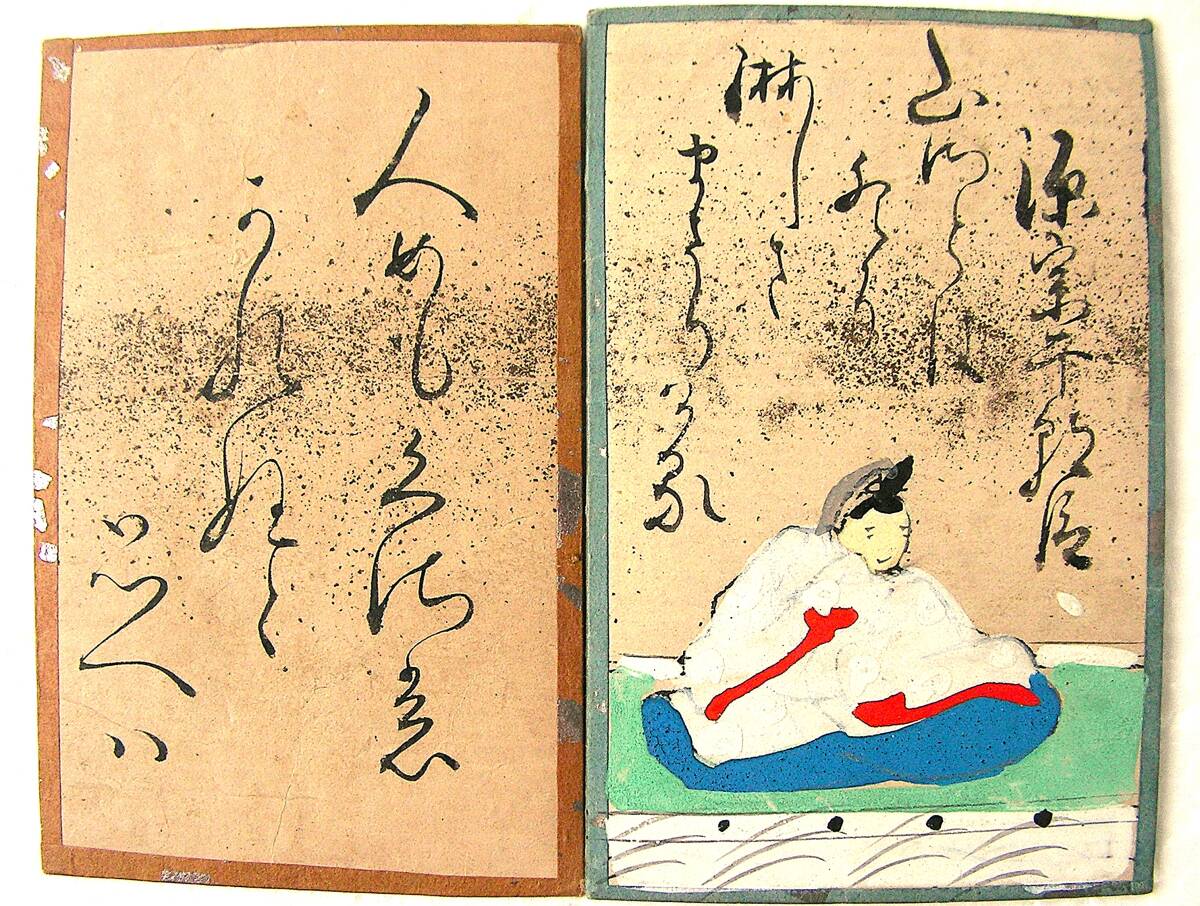 源宗于朝臣
山さとは
冬そ
淋しさ
まさりける
人めもくさも
かれぬと
おもへは